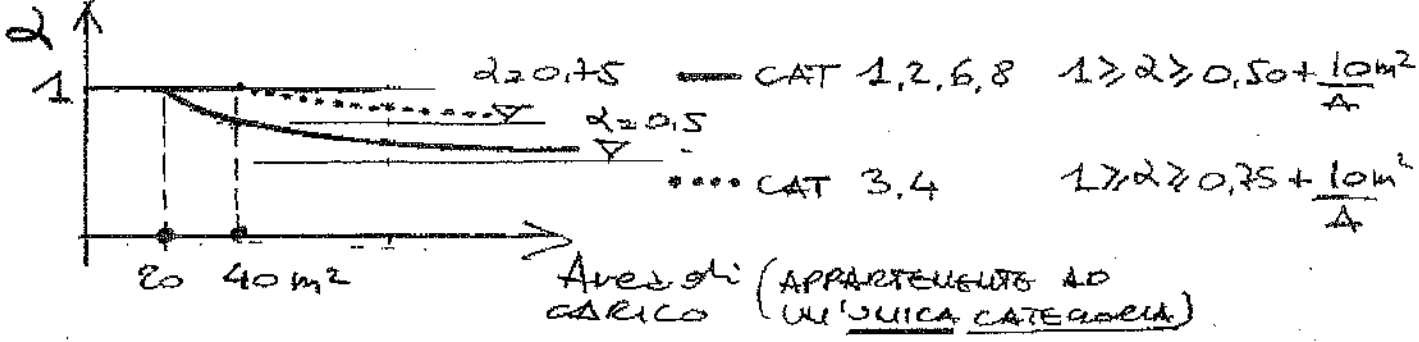 α
1
α=0,75
CAT 1,2,6,8 1≥α≥0,50+10m²/A
α=0,5
CAT 3,4 1≥α≥0,75+10m²/A
20 40 m²
Area di CARICO (APPARTENENTE AD UN'UNICA CATEGORIA)